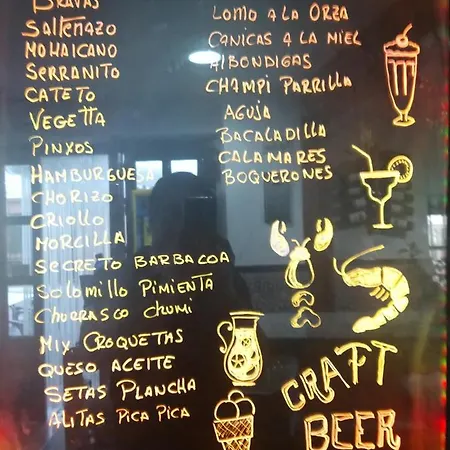 BRAVAS
SALTEÑAZO
MOHAICANO
SERRANITO
CATETO
VEGETTA
PINXOS
HAMBURGUESA
CHORIZO
CRIOLLO
MORCILLA
SECRETO BARBACOA
SOLOMILLO PIMIENTA
CHURRASCO CHUMI
MIX CROQUETAS
QUESO ACEITE
SETAS PLANCHA
ALITAS PICA PICA
LOMO A LA ORZA
CANICAS A LA MIEL
ALBONDIGAS
CHAMPI PARRILLA
AGUJA
BACALADILLA
CALAMARES
BOQUERONES
CRAFT
BEER